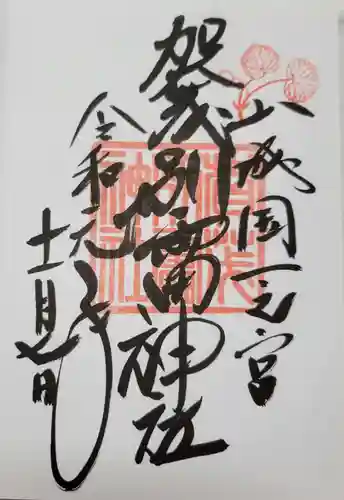 山城国一之宮
賀茂別雷神社
令和元年
十一月七日